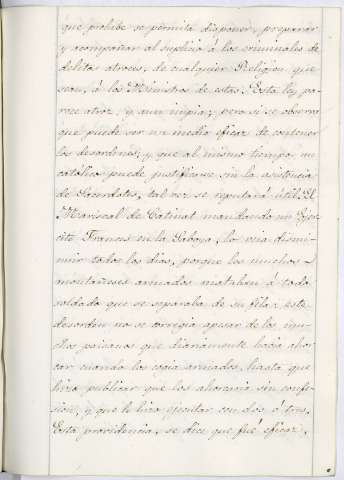 que prohibe se permita disponer, preparar
y acompañar al suplicio á los criminales de
delitos atroces, de cualquier Religion que
sean, á los Ministros de estas. Esta ley pa-
rece atroz, y aun impia; pero si se observa
que puede ser un medio eficaz de contener
los desordenes, y que al mismo tiempo un
católico puede justificarse sin la asistencia
de Sacerdotes, tal vez se reputará útil. El
Mariscal de Catinat mandando un Ejer-
cito Frances en la Saboya, lo veia dismi-
nuir todos los dias, porque los muchos
montañeses armados mataban á todo
soldado que se separaba de su fila: este
desorden no se corregia apesar de los mu-
chos paisanos que diariamente hacia ahor-
car cuando los cogia armados, hasta que
hizo publicar que los ahorcaria sin confe-
sion, y que lo hizo ejecutar con dos ó tres.
Esta providencia, se dice que fué eficaz,